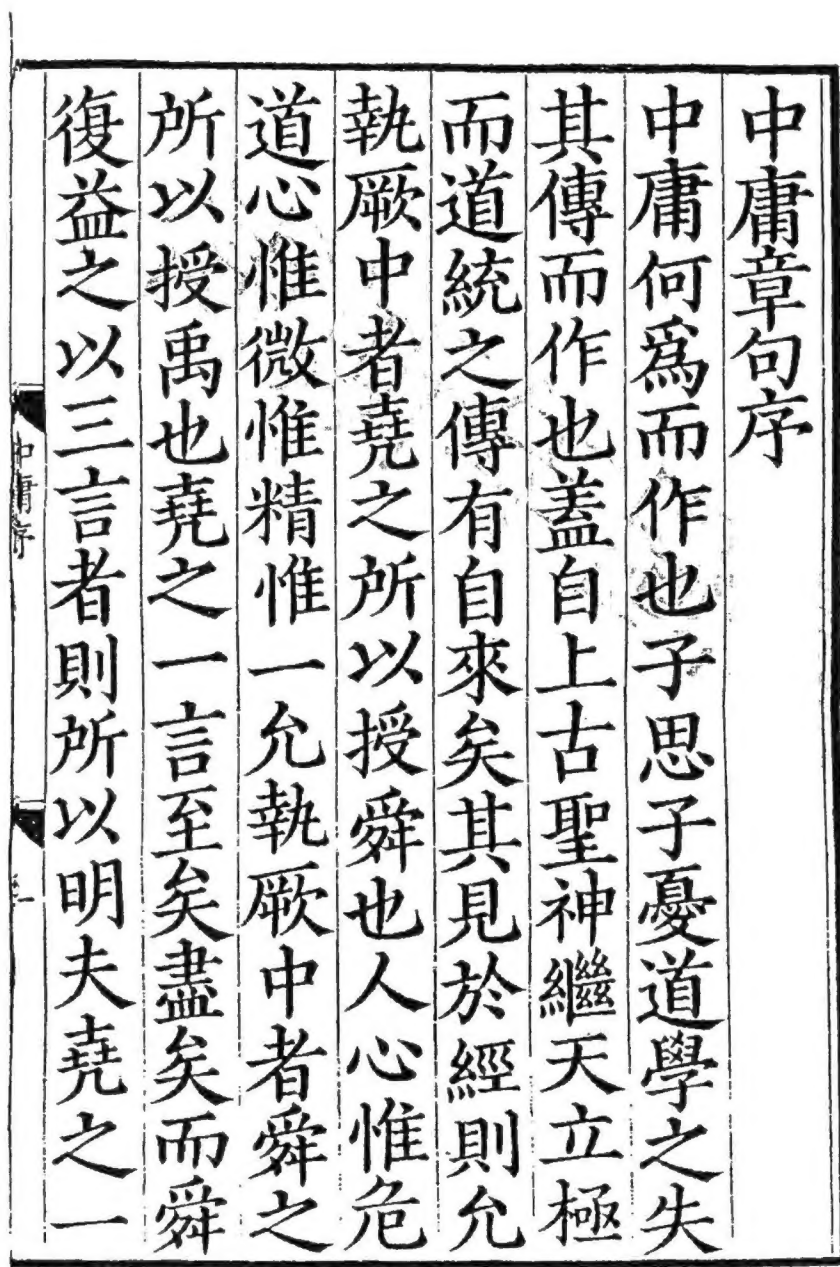 中庸章句序
中庸何爲而作也子思子憂道學之失
其傳而作也蓋自上古聖神繼天立極
而道統之傳有自來矣其見於經則允
執厥中者堯之所以授舜也人心惟危
道心惟微惟精惟一允執厥中者舜之
所以授禹也堯之一言至矣盡矣而舜
復益之以三言者則所以明夫堯之一
中庸序